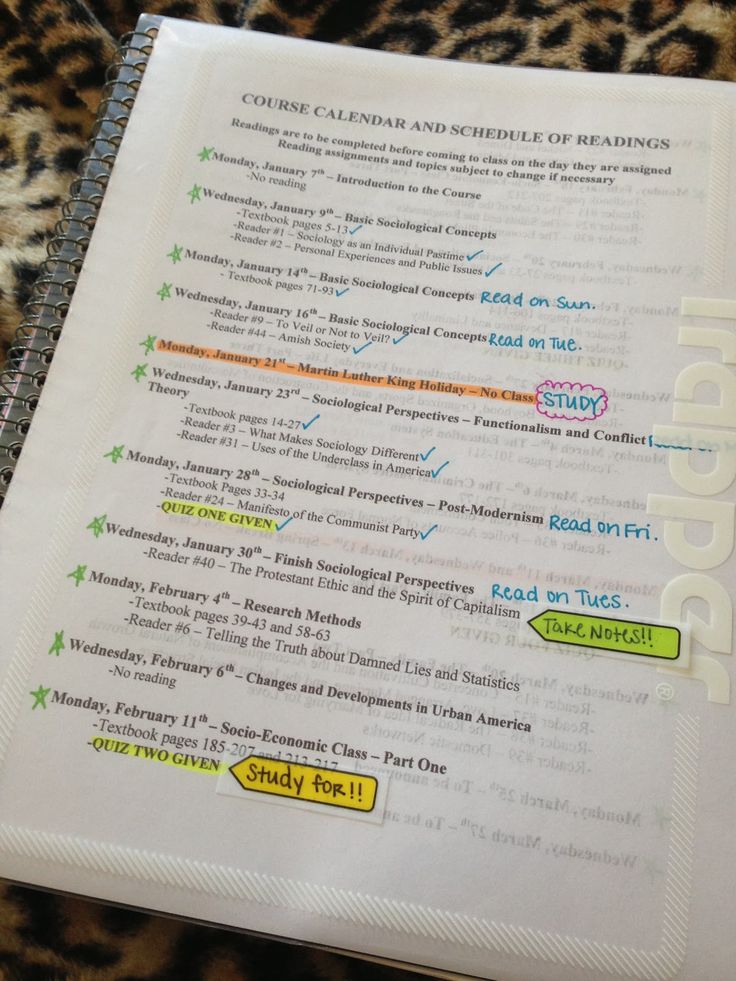 COURSE CALENDAR AND SCHEDULE OF READINGS
Readings are to be completed before coming to class on the day they are assigned
Reading assignments and topics subject to change if necessary
Monday, January 7th – Introduction to the Course
-No reading
Wednesday, January 9th – Basic Sociological Concepts
-Textbook pages 5-13
-Reader #1 – Sociology as an Individual Pastime
-Reader #2 – Personal Experiences and Public Issues
Monday, January 14th – Basic Sociological Concepts Read on Sun.
- Textbook pages 71-93
Wednesday, January 16th – Basic Sociological Concepts Read on Tue.
-Reader #9 – To Veil or Not to Veil?
-Reader #44 – Amish Society
Monday, January 21st – Martin Luther King Holiday – No Class STUDY
Wednesday, January 23rd – Sociological Perspectives – Functionalism and Conflict
Theory
-Textbook pages 14-27
-Reader #3 – What Makes Sociology Different
-Reader #31 – Uses of the Underclass in America
Monday, January 28th – Sociological Perspectives – Post-Modernism Read on Fri.
-Textbook Pages 33-34
-Reader #24 – Manifesto of the Communist Party
-QUIZ ONE GIVEN
Wednesday, January 30th – Finish Sociological Perspectives Read on Tues.
-Reader #40 – The Protestant Ethic and the Spirit of Capitalism
Monday, February 4th – Research Methods TAKE NOTES!!
-Textbook pages 39-43 and 58-63
-Reader #6 – Telling the Truth about Damned Lies and Statistics
Wednesday, February 6th – Changes and Developments in Urban America
-No reading
Monday, February 11th – Socio-Economic Class – Part One
-Textbook pages 185-207 and 213-217
-QUIZ TWO GIVEN Study for!!
rapper®